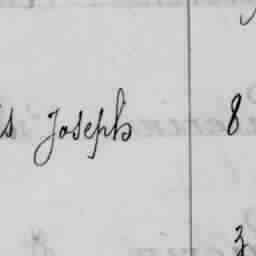 s Joseph 8
3